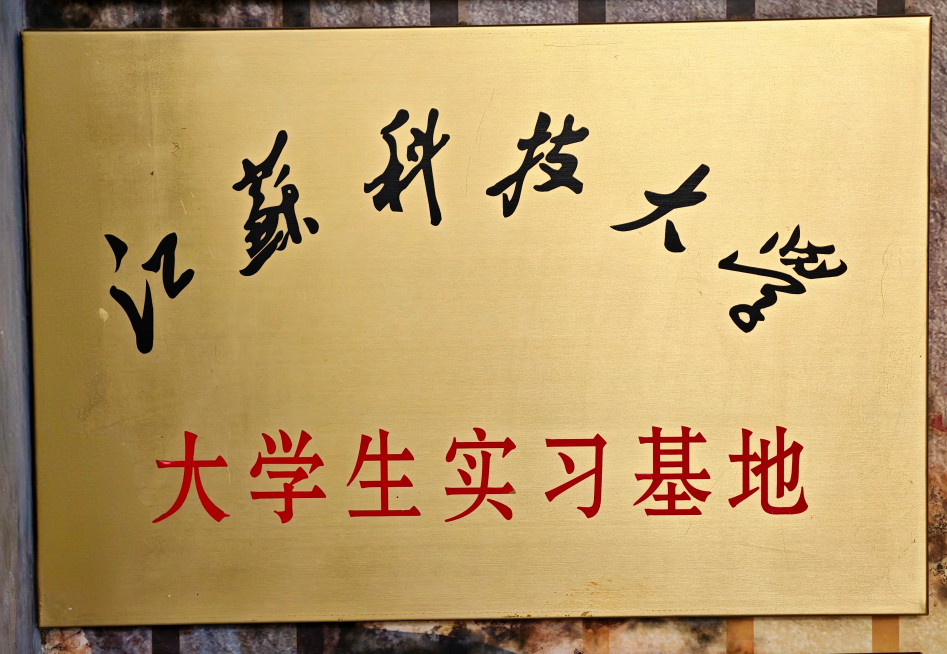 江苏科技大学
大学生实习基地